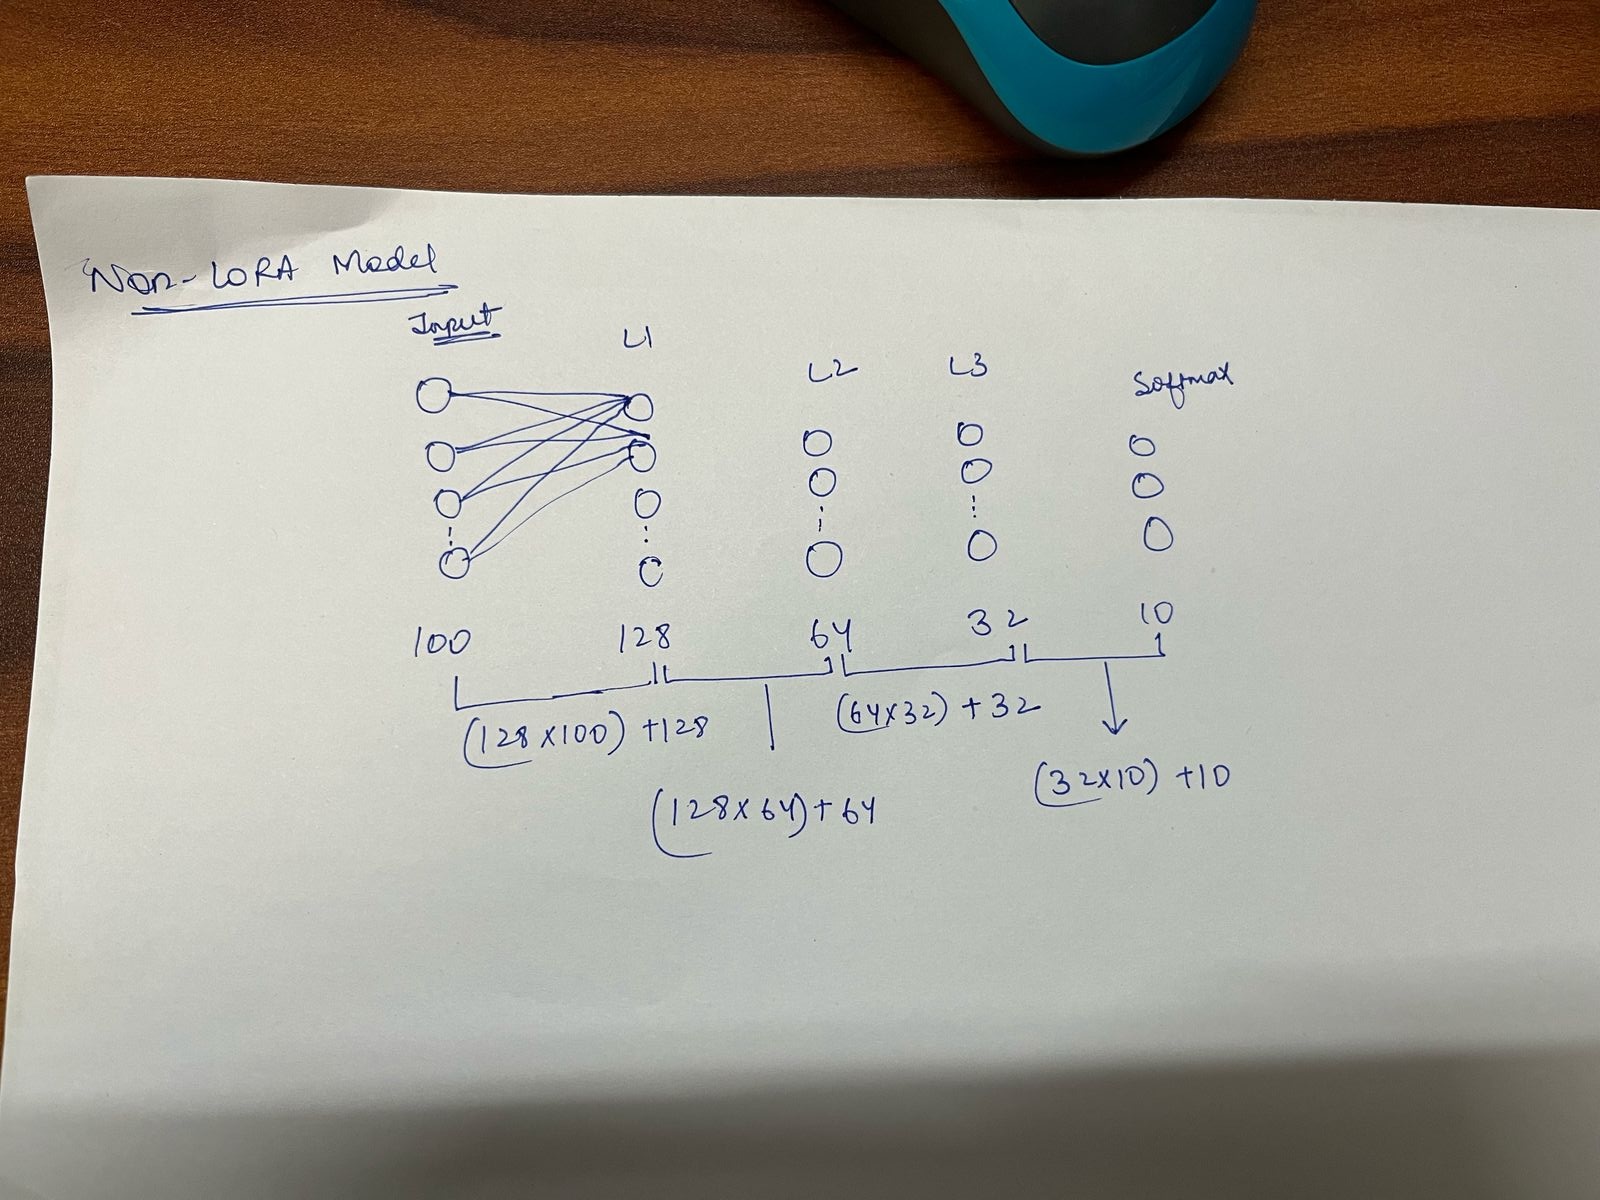 Non-LORA Model
Input L1 L2 L3 Softmax
100 128 64 32 10
(128x100) +128
(64x32) + 32
(32x10) +10
(128x64)+64